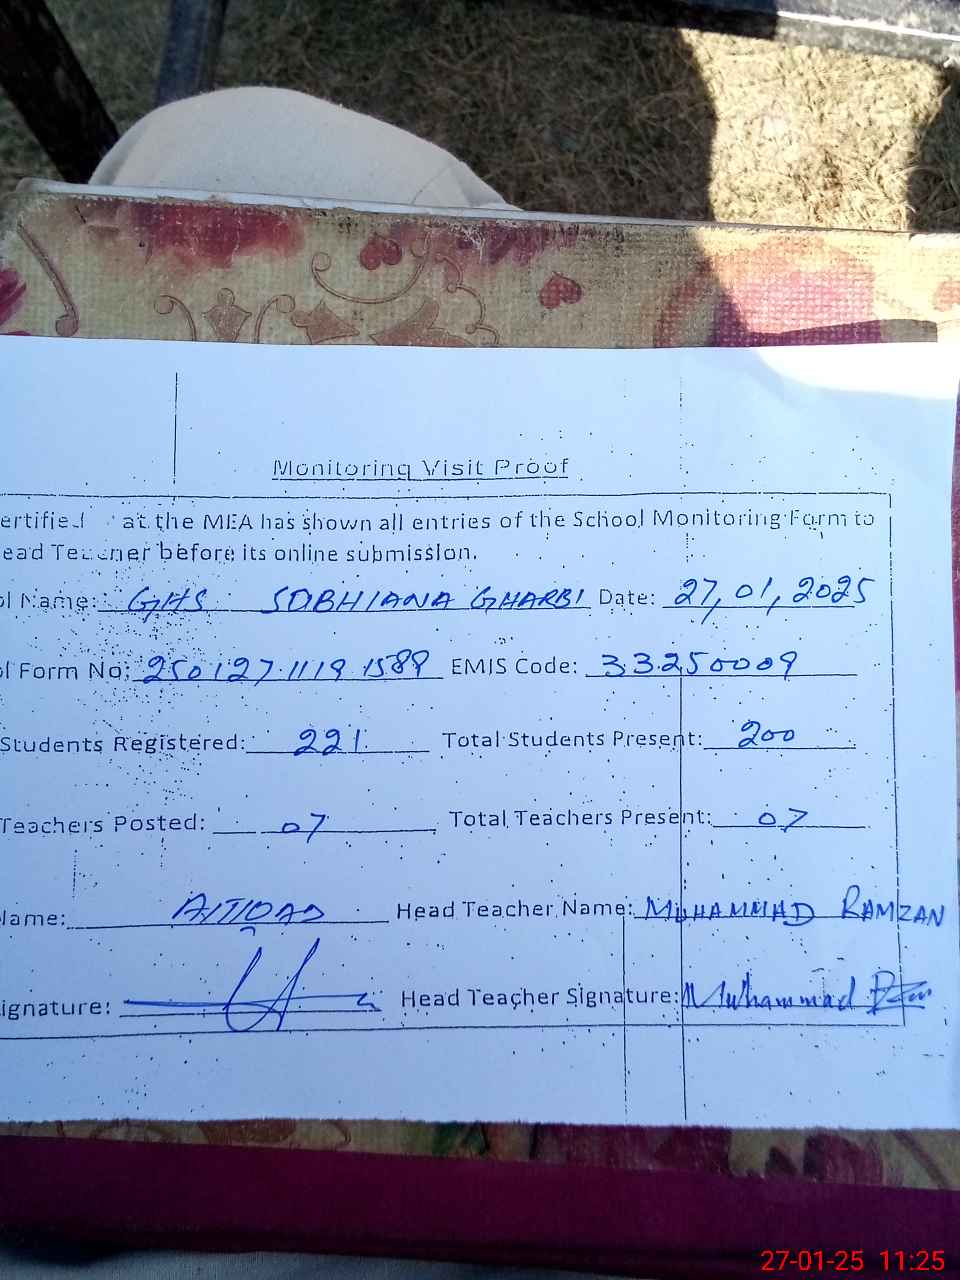 Monitoring Visit Proof
ertified at the MEA has shown all entries of the School Monitoring Form to
ead Teacher before its online submission.
ol Name: GHS SOBHIANA GHARBI Date: 27,01,2025
ol Form No: 250127.1119.1589 EMIS Code: 33250009
Students Registered: 221 Total Students Present: 200
Teachers Posted: 07 Total Teachers Present: 07
Name: Head Teacher Name: MUHAMMAD RAMZAN
ignature: Head Teacher Signature: Muhammad
27-01-25 11:25